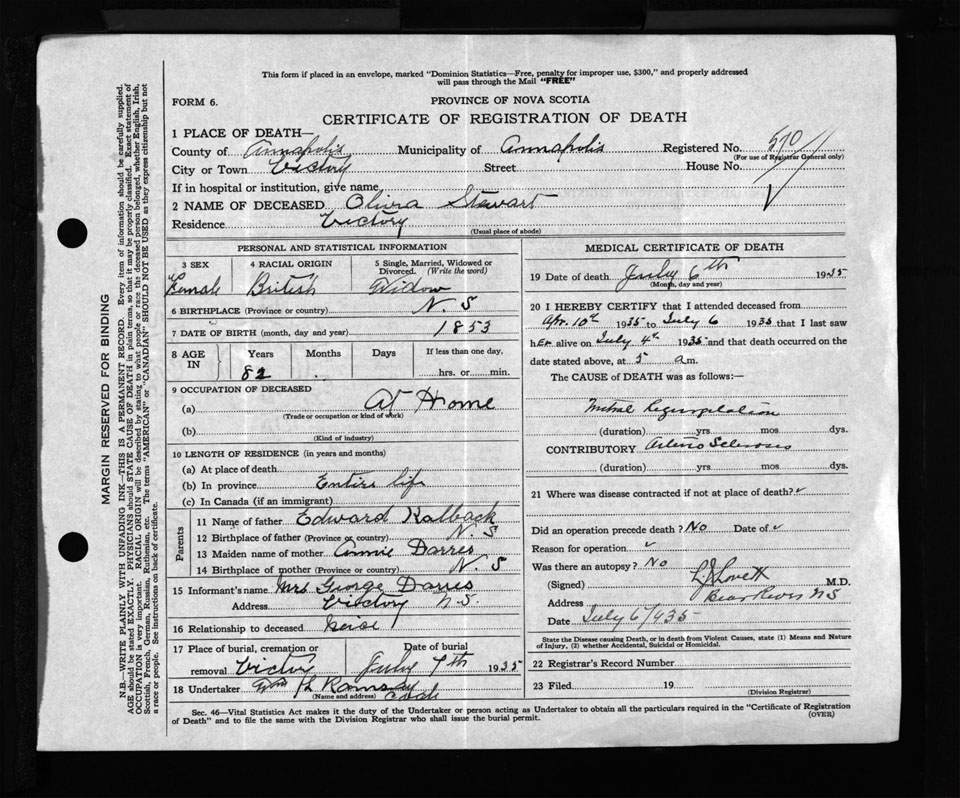 This form if placed in an envelope, marked "Dominion Statistics—Free, penalty for improper use, $300," and properly addressed
will pass through the Mail "FREE"
FORM 6.
PROVINCE OF NOVA SCOTIA
CERTIFICATE OF REGISTRATION OF DEATH
1 PLACE OF DEATH—
County of Annapolis Municipality of Annapolis Registered No. 570
(For use of Registrar General only)
City or Town Victory Street House No.
If in hospital or institution, give name
2 NAME OF DECEASED Olivia Stewart
Residence Victory
(Usual place of abode)
PERSONAL AND STATISTICAL INFORMATION
3 SEX 4 RACIAL ORIGIN 5 Single, Married, Widowed or
Divorced. (Write the word)
Female British Widow
6 BIRTHPLACE (Province or country) N. S
7 DATE OF BIRTH (month, day and year) 1853
8 AGE IN Years Months Days If less than one day,
82 hrs. or min.
9 OCCUPATION OF DECEASED
(a) At Home
(Trade or occupation or kind of work)
(b)
(Kind of industry)
10 LENGTH OF RESIDENCE (in years and months)
(a) At place of death
(b) In province Entire life
(c) In Canada (if an immigrant)
Parents
11 Name of father Edward Kalback
12 Birthplace of father (Province or country) N. S
13 Maiden name of mother Annie Darres
14 Birthplace of mother (Province or country) N. S
15 Informant's name Mrs George Darres
Address Victory N.S.
16 Relationship to deceased Neise
17 Place of burial, cremation or Date of burial
removal Victory July 7th 1935
18 Undertaker Ramsay
(Name and address)
MEDICAL CERTIFICATE OF DEATH
19 Date of death July 6th 1935
(Month, day and year)
20 I HEREBY CERTIFY that I attended deceased from
Apr. 10th 1935 to July 6 1935 that I last saw
her alive on July 4th 1935 and that death occurred on the
date stated above, at 5 a.m.
The CAUSE of DEATH was as follows:—
Mitral Regurgitation
(duration) yrs. mos. dys.
CONTRIBUTORY Arterio Sclerosis
(duration) yrs. mos. dys.
21 Where was disease contracted if not at place of death?
Did an operation precede death? No Date of
Reason for operation
Was there an autopsy? No
(Signed) L.J. Lovett M.D.
Address Bear River N S
Date July 6/1935
State the Disease causing Death, or in death from Violent Causes, state (1) Means and Nature
of Injury, (2) whether Accidental, Suicidal or Homicidal.
22 Registrar's Record Number
23 Filed 19
(Division Registrar)
Sec. 46—Vital Statistics Act makes it the duty of the Undertaker or person acting as Undertaker to obtain all the particulars required in the "Certificate of Registration
of Death" and to file the same with the Division Registrar who shall issue the burial permit. (OVER)
MARGIN RESERVED FOR BINDING
N.B.—WRITE PLAINLY WITH UNFADING INK—THIS IS A PERMANENT RECORD. Every item of information should be carefully supplied.
AGE should be stated EXACTLY. PHYSICIANS should STATE CAUSE OF DEATH in plain terms, so that it may be properly classified. Exact statement of
OCCUPATION is very important. RACIAL ORIGIN will be described by stating to what people or race the deceased person belonged, whether English, Irish,
Scottish, French, German, Russian, Ruthenian, etc. The terms "AMERICAN" or "CANADIAN" SHOULD NOT BE USED as they express citizenship but not
a race or people. See instructions on back of certificate.